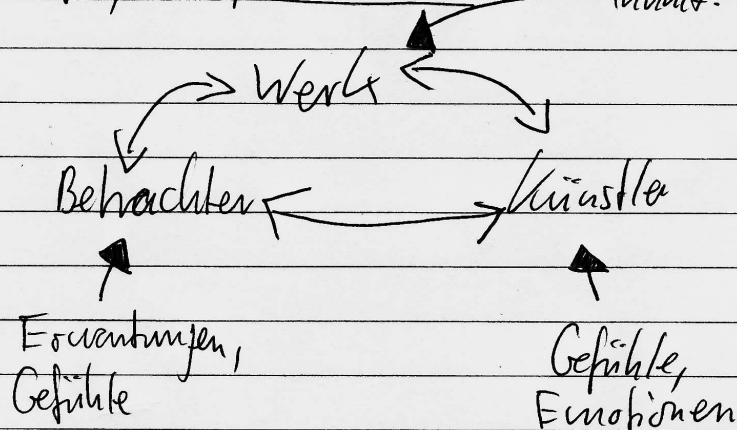 Werk
Betrachter
Künstler
Erwartungen,
Gefühle
Gefühle,
Emotionen